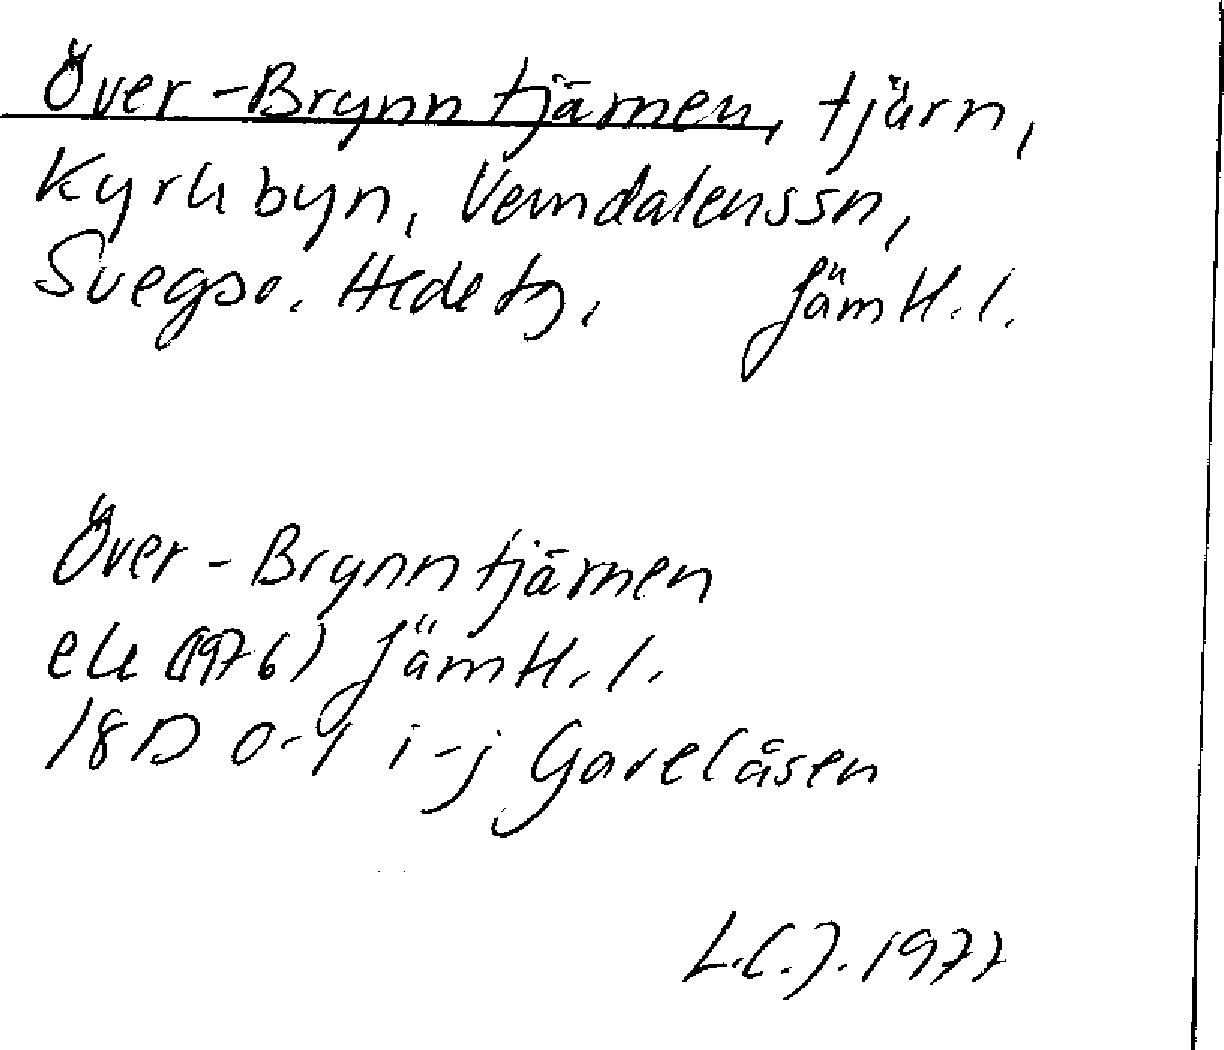 Över-Brynntjärnen, tjärn,
Kyrkbyn, Vemdalenssn,
Svegso. Hede tg, Jämtl. l.
Över-Brynntjärnen
ek (1976) Jämtl. l.
18D 0-1 i-j Gavelåsen
L.C.J. 1977